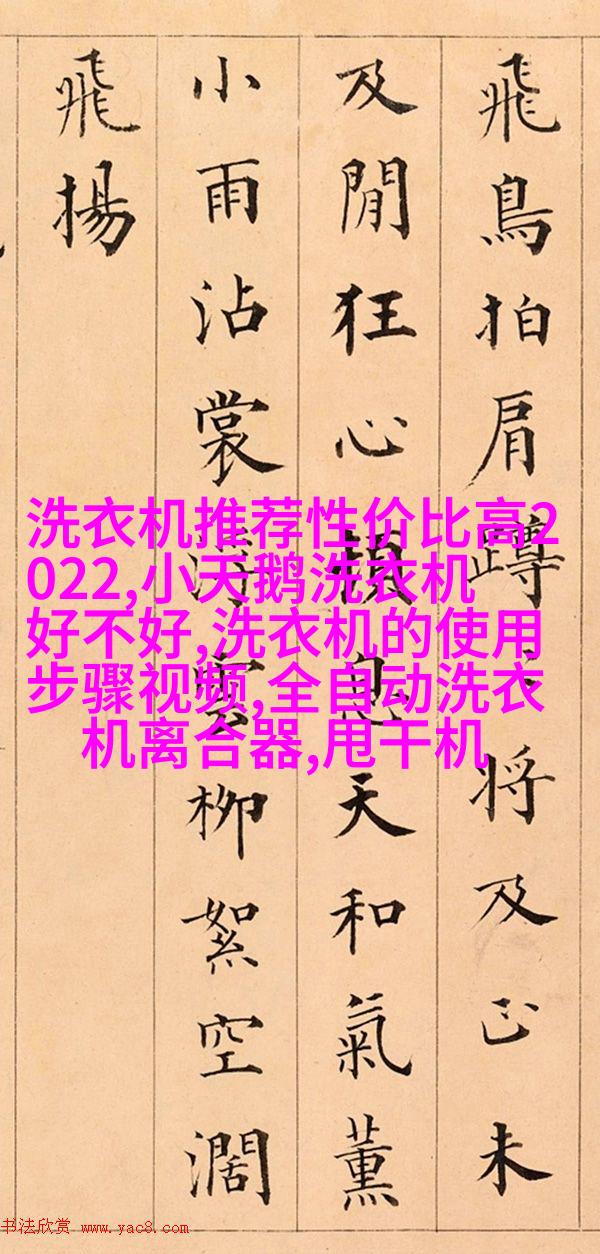 飛鳥拍肩蹲將及正未
及閒狂心頓息天和氣薰
小雨沾裳雲柳絮空濶
飛揚
洗衣机推荐性价比高2
022,小天鹅洗衣机
好不好,洗衣机的使用
步骤视频,全自动洗衣
机离合器,甩干机
书法欣赏 www.yac8.com